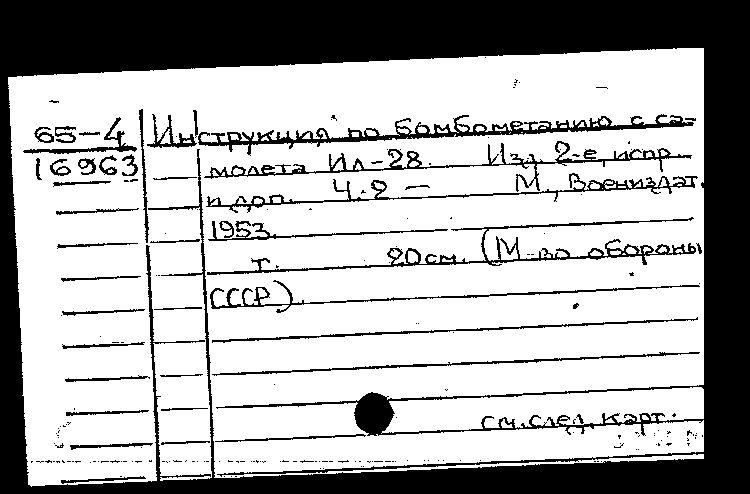 65-4
16963
Инструкция по бомбометанию с са-
молета Ил-28. Изд. 2-е, испр.
и доп. Ч.2 — М., Воениздат,
1953.
т. 20 см. (М-во обороны
СССР).
см. след. карт.